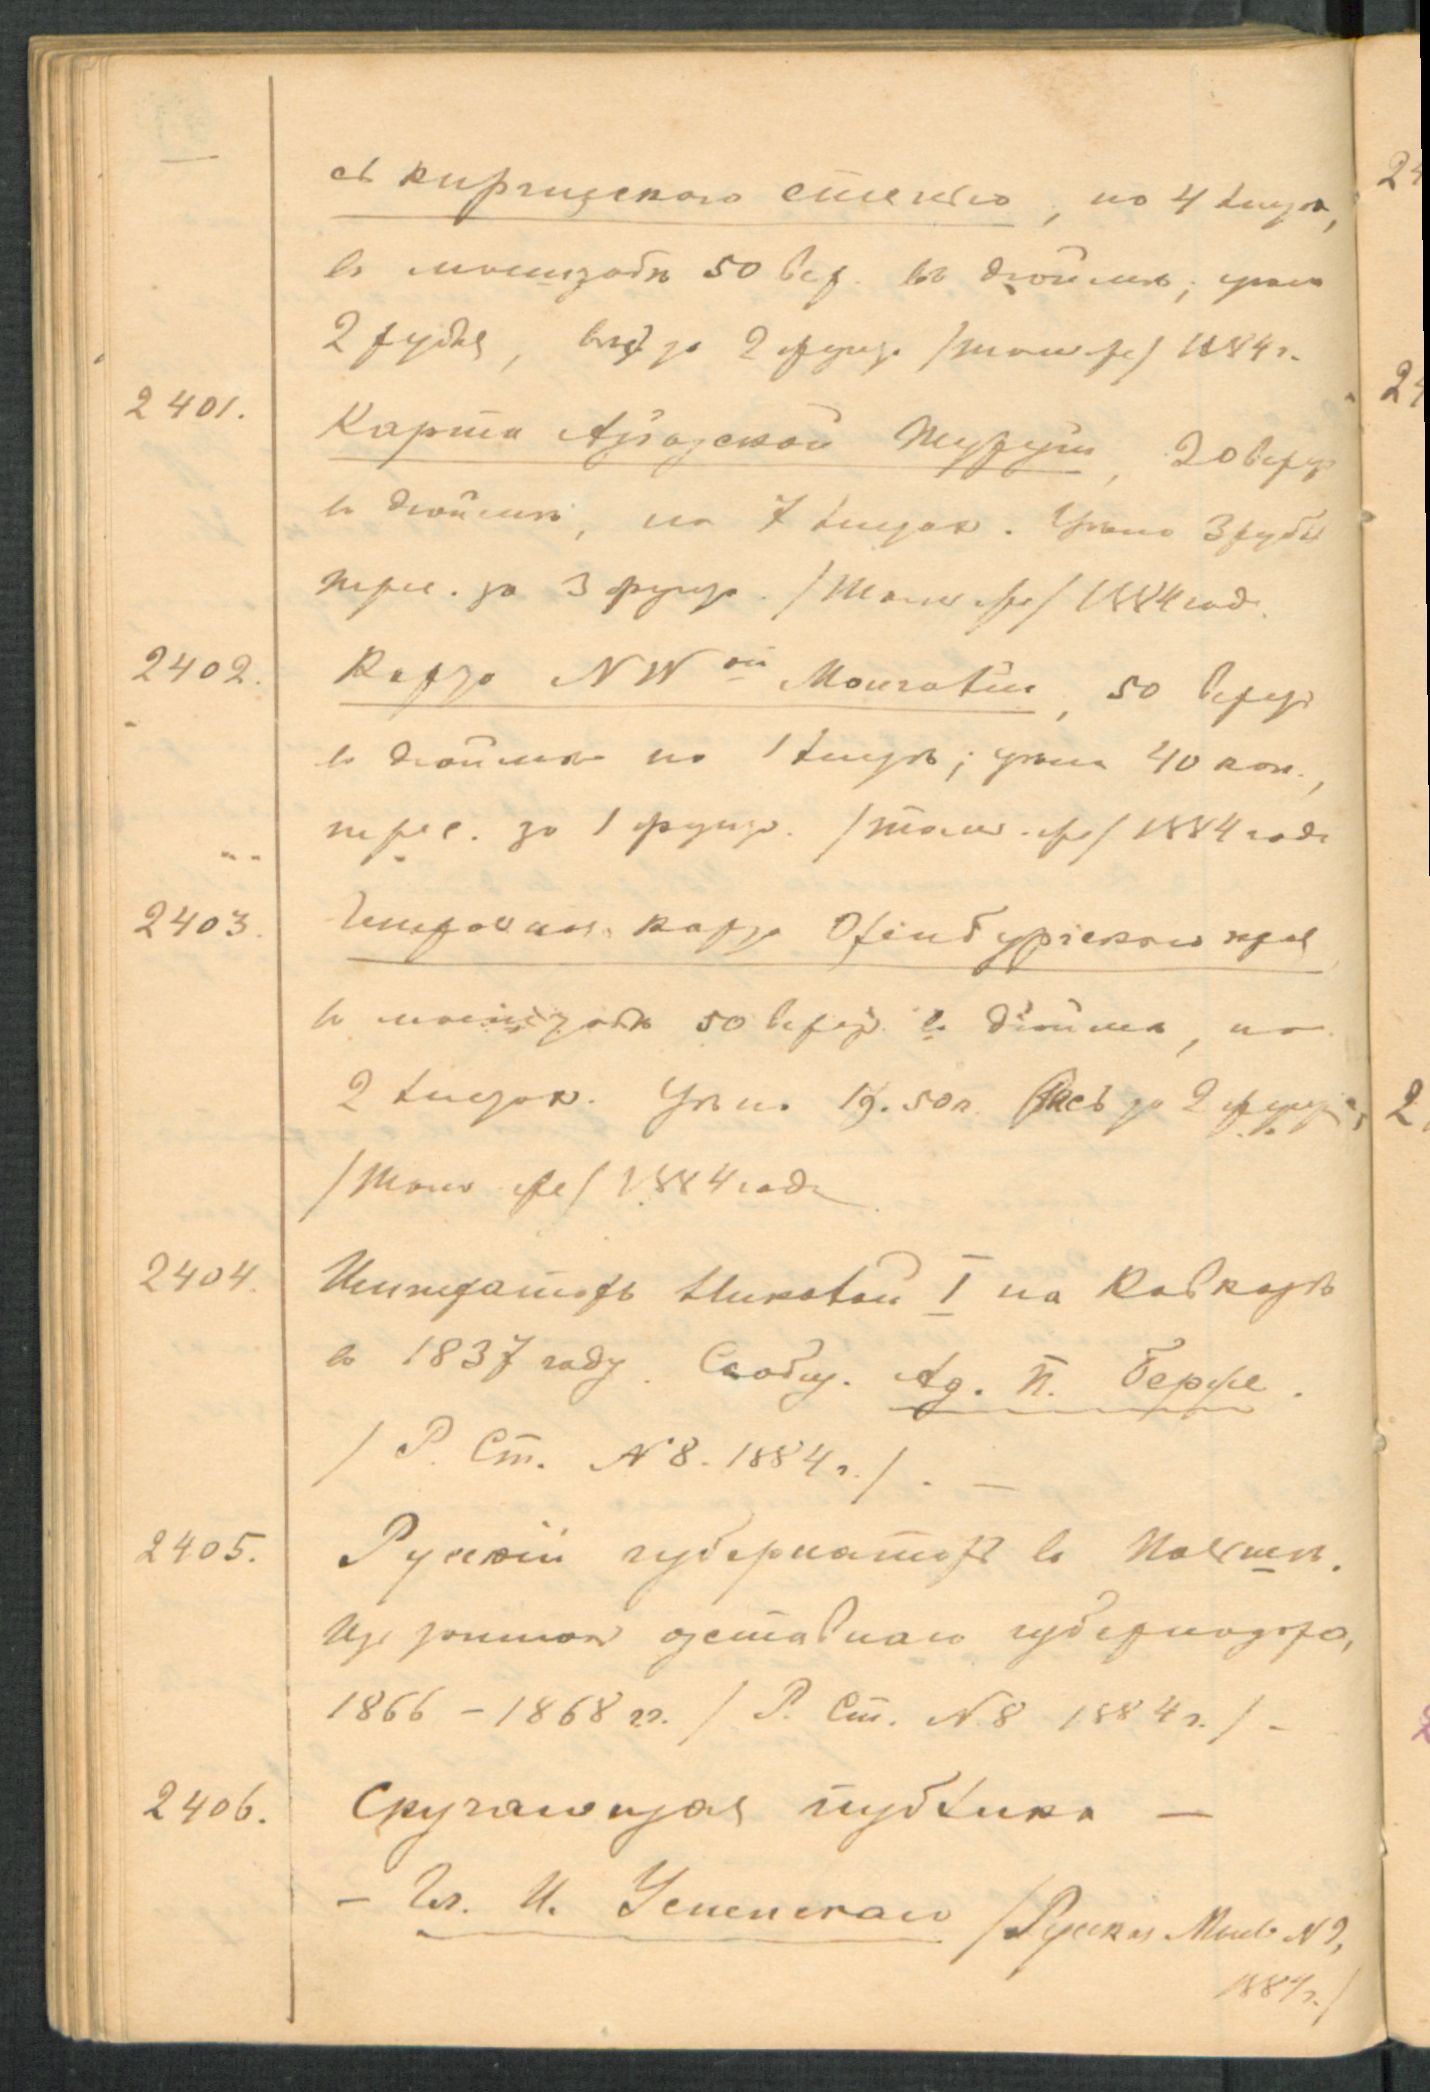 съ киргизскою степью, на 4 листах,
въ масштабѣ 50 вер. въ дюймѣ; цѣна
2 рубля, вѣсъ за 2 фунта /Тамъ же/ 1884 г.
2401. Карта Азіатской Турціи, 20 верстъ
въ дюймѣ, на 7 листах. Цѣна 3 рубля
перес. за 3 фунта. /Тамъ же/ 1884 года.
2402. Карта NW ой Монголіи, 50 верстъ
въ дюймѣ на 1 листѣ; цѣна 40 коп.,
перес. за 1 фунтъ. /Тамъ же/ 1884 года
2403. карта Оренбургскаго края
въ масштабѣ 50 верстъ въ дюймѣ, на
2 листах. Цѣна 1 р. 50 к. вѣсъ за 2 фунта,
/Тамъ же/ 1884 года
2404. Императоръ Николай I на Кавказѣ
въ 1837 году. Сообщ. Ад. П. Берже.
/Р. Ст. N 8. 1884 г./. —
2405. Русскій губернаторъ въ Польшѣ.
Из записок отставнаго губернатора,
1866 – 1868 гг. /Р. Ст. N 8 1884 г./ –
2406. Скучающая публика —
– Гл. И. Успенскаго /Русская Мысль N 9,
1884 г./
24
24
2